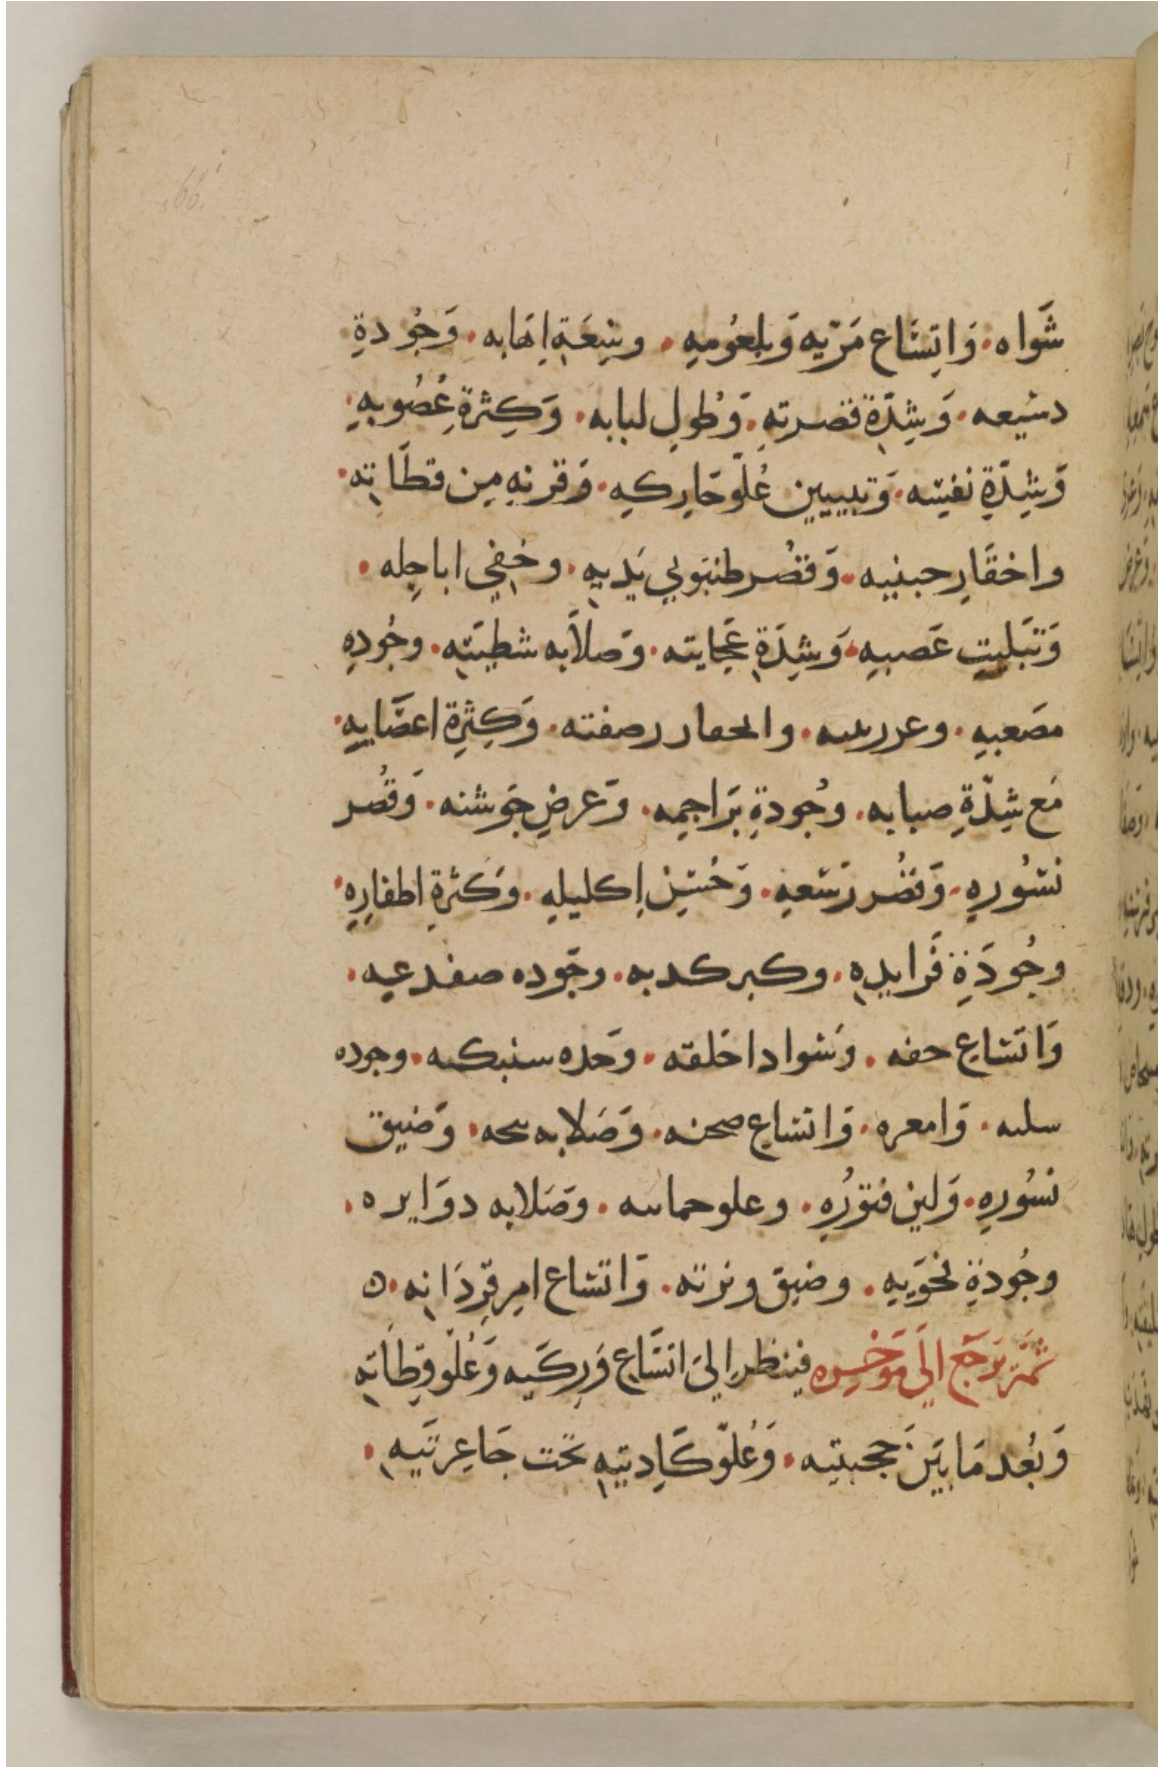 شَواه. وَاتِسَاع مَرّيه وَبلعُومهِ. وسِعَةِ اِهَابه. وَجُودةِ
دسَيعه. وَشِدّة قصرتهِ. وَطُولِ لبابه. وَكِثرةِ عُصُوبهِ.
وَشِدّةِ نفسَه. وَتبيين عُلوّ حَاركهِ. وَقرنهِ مِن قطَاتِه.
واحقَارِ جبنيه. وَقصُر طنبَوبي يَديهِ. وخفِي اباجِله.
وَتَبليتِ عَصبهِ. وَشِدّةِ عَجَايته. وَصلاَبه شطيَته. وجُودهِ
مصَعبهِ. وَكِثرةِ اعصَابهِ.
مَع شِدّةِ صبابه. وجُودةِ بَراجمِه. وَعرضِ جَوشنه. وَقصُر
نسُورهِ. وَقصُر رَسَعهِ. وَحُسَنِ اِكليلهِ. وَكثرةِ اطفارِهِ
وجُودَةِ فَرايدِه. وكبر كعبه. وجَوده صفدعيه.
وَاتشاع حفه. وَسَواد اخَلقه. وَحده سنبكه. وجوده
وَامعره. وَاتشاعِ صحنه. وَصَلابه. وَضيق
نسُورهِ. وَلين فتوُرُهِ. وعلو حماته. وصَلابه دوَايره.
وجُودةِ نحَوَيهِ. وضيق وترته. وَاتشاع امِر قِردَانِه. ه
ثمّ يَرجَع الَى مَوَخِره فينظر اِلىَ اتسَّاعِ وَرِكَيه وَعُلوّ وِقطَاتهِ
وَبُعد مَا بيَن حَجبتيه. وَعُلوّ كَاِدتيهِ تحَت جَاعِرتَيهِ.